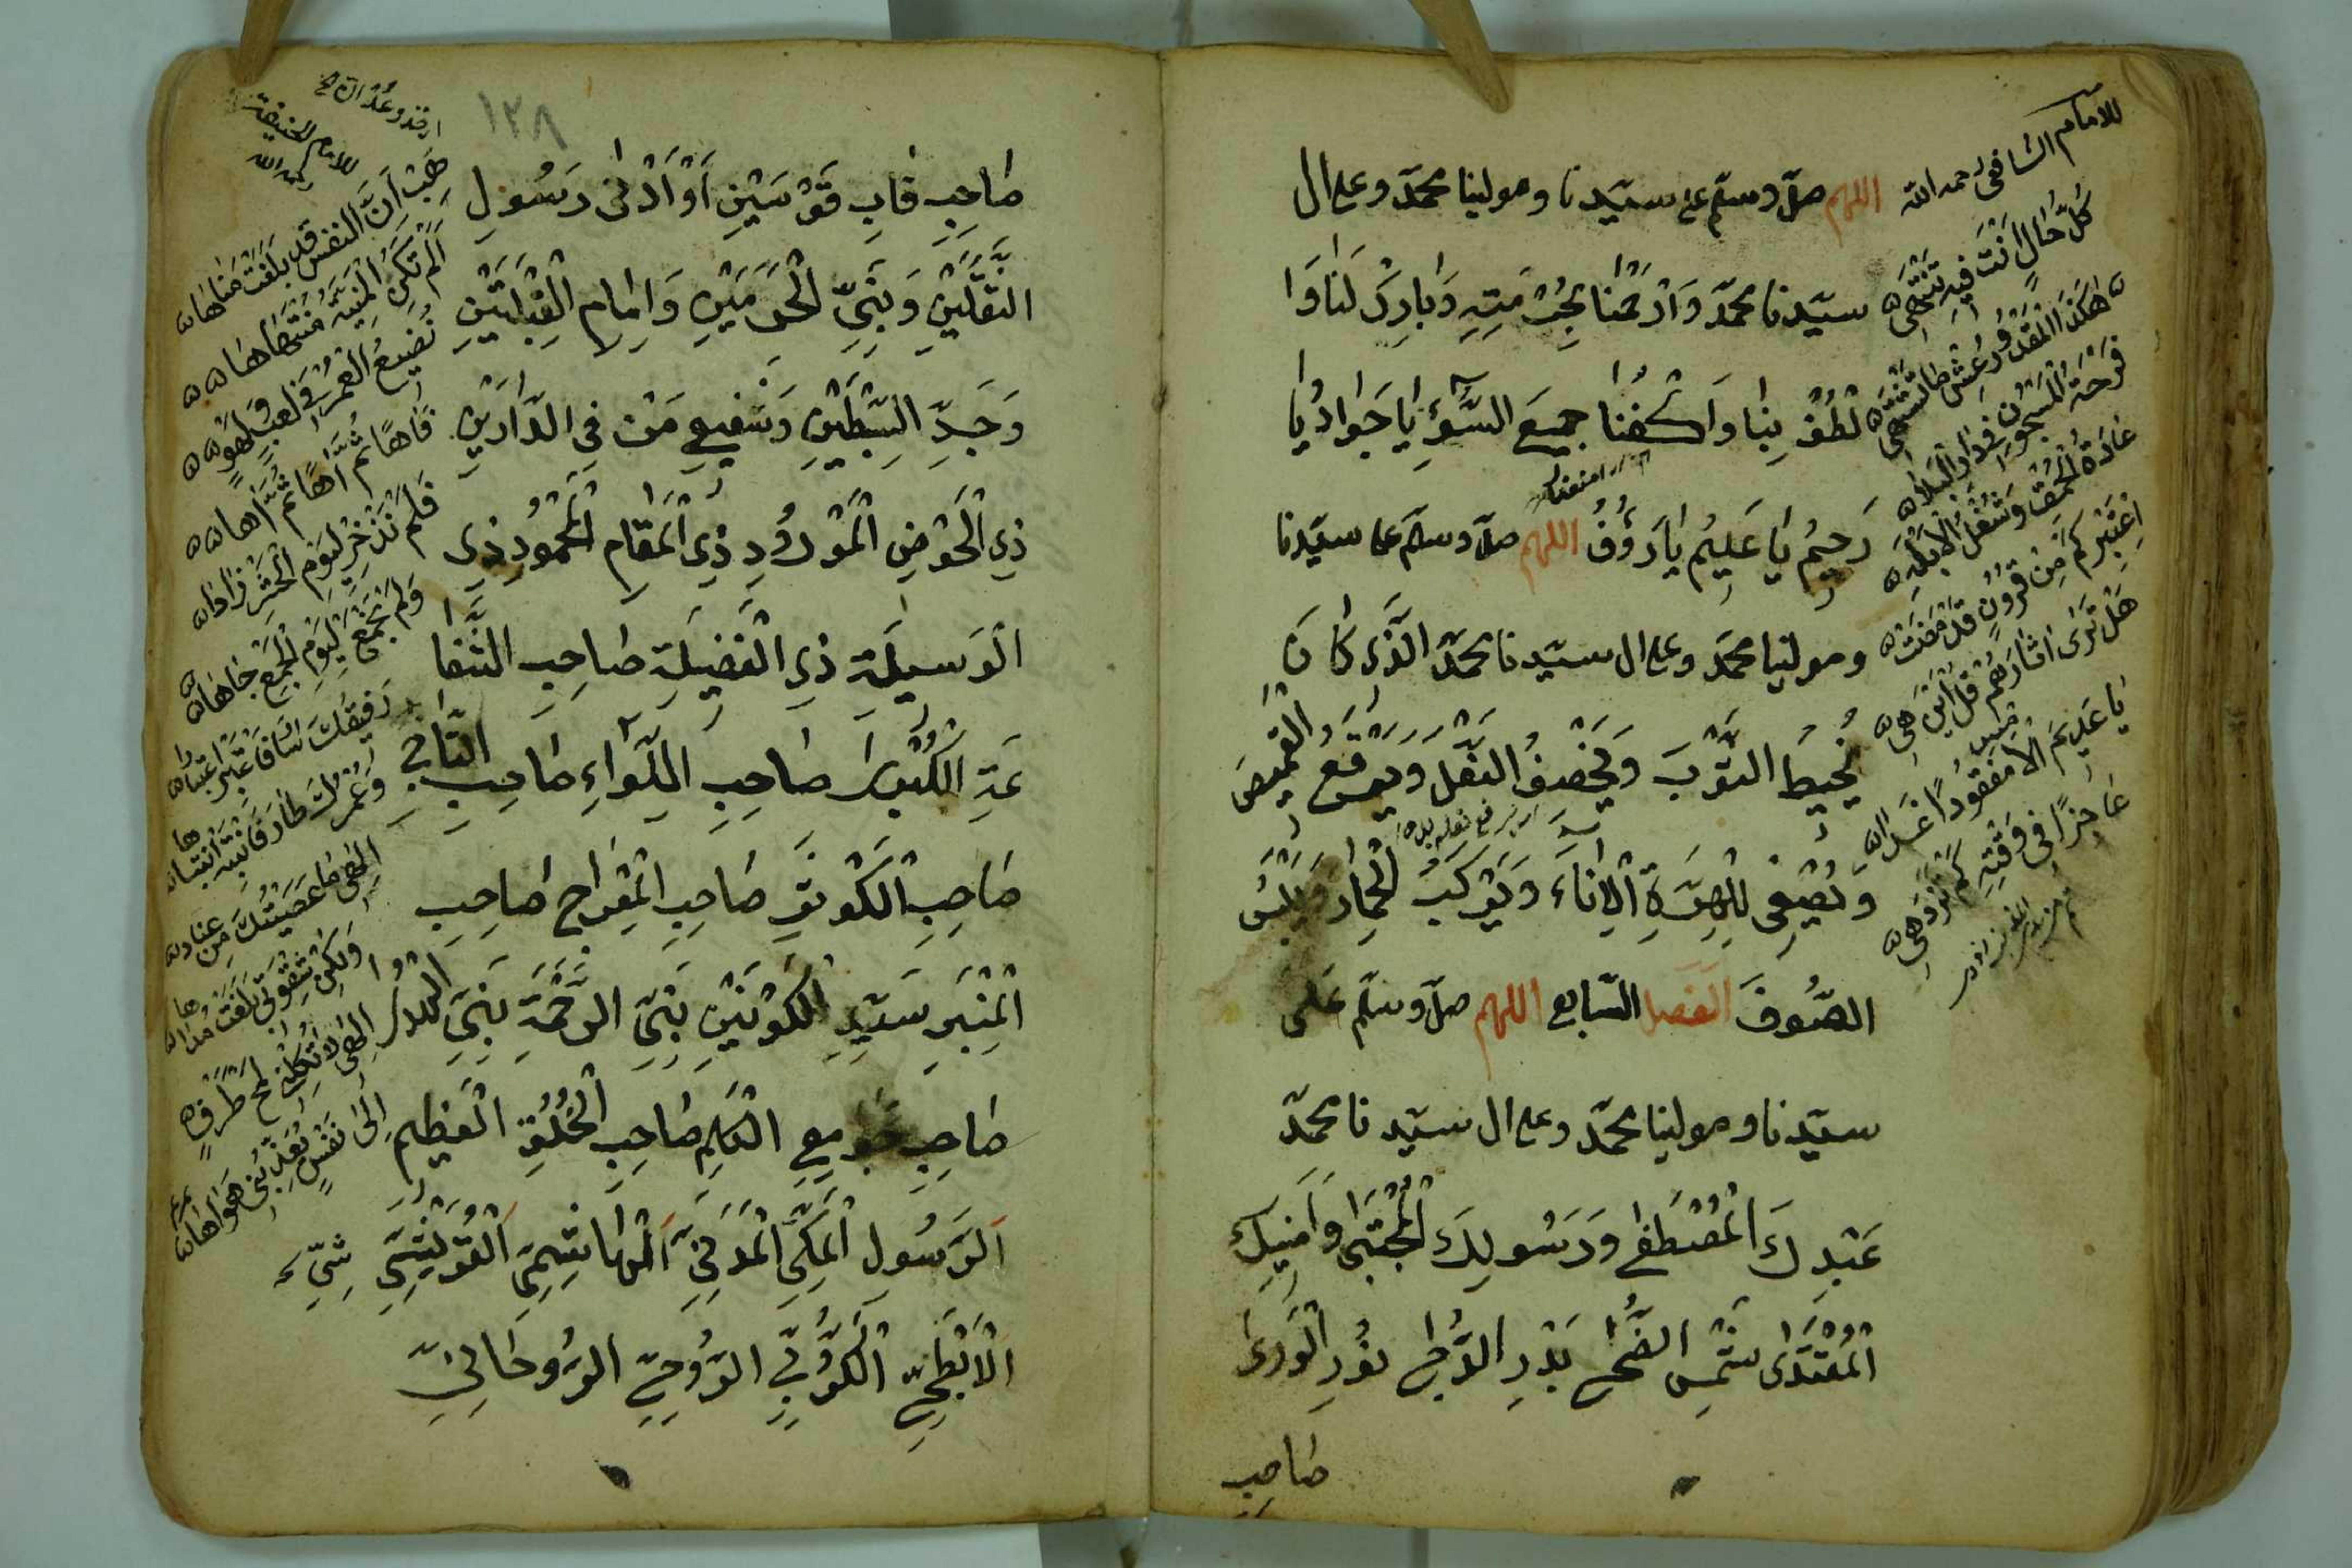 اللهم صلّ وسلّم على سيّدنا ومولينا محمّد وعلى ال
سيّدنا محمّد وَارْحَمْنَا بِحُرْمَتِهِ وَبَارِكْ لَنَا وَا
لْطُفْ بِنَا وَاكْفِنَا جميعَ السُّوءِ يَا جَوَادُ يَا
رَحيمُ يَا عَلِيمُ يَا رَؤُفُ اللهم صلّ وسلّم على سيّدنا
ومولينا محمّد وعلى ال سيّدنا محمّد الَّذِى كَانَ
يُخِيطُ الثَّوْبَ وَيَخْصِفُ النَّعْلَ وَيَرْقَعُ الْقَمِيصَ
وَيُصْغِى لِلْهِرَّةِ الْاِنَاءَ وَيَرْكَبُ الْحِمَارَ وَيَلْبَسُ
الصُّوفَ الفصل السّابع اللهم صلّ وسلّم عَلَى
سيّدنا ومولينا محمّد وعلى ال سيّدنا محمّد
عَبْدِكَ الْمُصْطَفٰى وَرَسُولِكَ الْمُجْتَبٰى وَاَمِينِكَ
الْمُقْتَدٰى شَمْسِ الضُّحٰى بَدْرِ الدُّجٰى نُورِ الْوَرٰى
صَاحِبِ
للامام الشافعى رحمه الله
كُلُّ حَالٍ اَنْتَ فيهِ يَنْتَهِى
هٰكَذَا الْمَقْدُورُ عِشْ مَا تَشْتَهِى
فَرْحَةُ الْمَسْجُونِ فى دَارِ الْبَلَا
عَادَةُ الْحُمْقِ وَشُغْلُ الْاَبْلَهِ
اِعْتَبِرْ كَمْ مِنْ قُرُونٍ قَدْ مَضَتْ
هَلْ تَرَى اٰثَارَهُمْ قُلْ اَيْنَ هِى
١٢٨
صَاحِبِ قَابِ قَوْسَيْنِ اَوْ اَدْنٰى رَسُولِ
الثَّقَلَيْنِ وَنَبِىِّ الْحَرَمَيْنِ وَاِمَامِ الْقِبْلَتَيْنِ
وَجَدِّ السِّبْطَيْنِ وَشَفِيعِ مَنْ فِى الدَّارَيْنِ
ذِى الْحَوْضِ الْمَوْرُودِ ذِى الْمَقَامِ الْمَحْمُودِ ذِى
الْوَسيلَةِ ذِى الْفَضِيلَةِ صَاحِبِ الشَّفَا
عَةِ الْكُبْرٰى صَاحِبِ اللِّوَاءِ صَاحِبِ التَّاجِ
صَاحِبِ الْكَوْثَرِ صَاحِبِ الْمِعْرَاجِ صَاحِبِ
الْمِنْبَرِ سَيِّدِ الْكَوْنَيْنِ نَبِىِّ الرَّحْمَةِ نَبِىِّ
صَاحِبِ جَوَامِعِ الْكَلِمِ صَاحِبِ الْخُلُقِ الْعَظِيمِ
اَلرَّسُولِ الْمَكِّىِّ الْمَدَنِىِّ الْهَاشِمِىِّ الْقُرَيْشِىِّ
الْاَبْطَحِىِّ الْكَرُّوبِىِّ الرُّوحِىِّ الرُّوحَانِىِّ
هَبْ اَنَّ النَّفْسَ قَدْ بَلَغَتْ مُنَاهَا
اَلَمْ تَكُنِ الْمَنِيَّةُ مُنْتَهَاهَا
نُضِيعُ الْعُمْرَ فى لَعِبٍ وَلَهْوٍ
فَاٰهًا ثُمَّ اٰهًا ثُمَّ اٰهَا
فَلَمْ نَذْخَرْ لِيَوْمِ الْحَشْرِ زَادًا
وَلَمْ نَجْمَعْ لِيَوْمِ الْجَمْعِ جَاهَا
اِلٰهِى مَا عَصَيْتُكَ مِنْ عِنَادٍ
وَلٰكِنْ شِقْوَتى بَلَغَتْ مَدَاهَا
اِلٰهِى لَا تَكِلْنِى لَمْحَ طَرْفٍ
اِلٰى نَفْسٍ تُعَذِّبُنِى هَوَاهَا